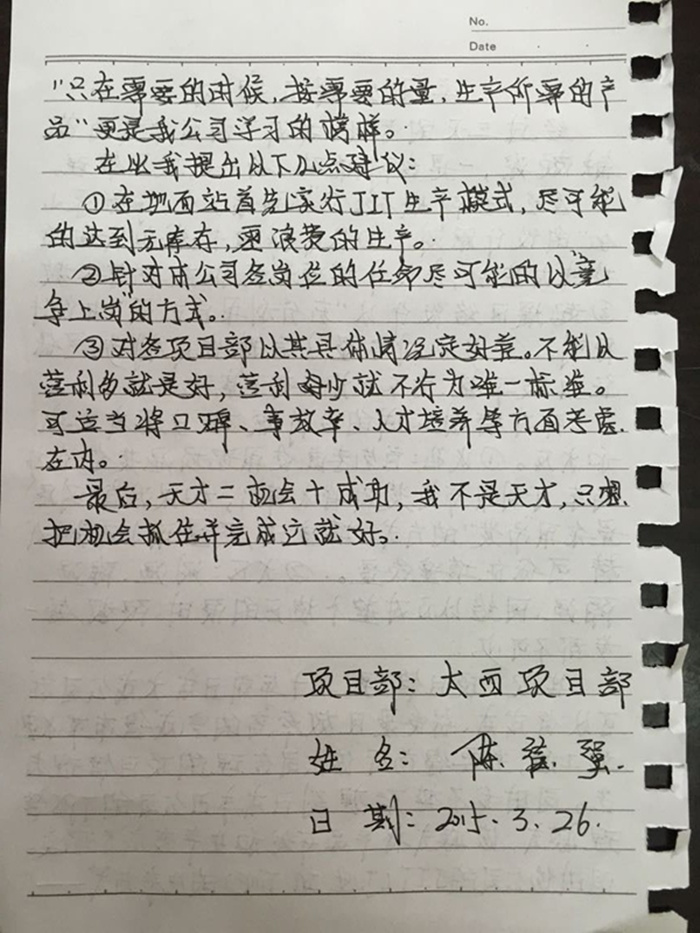 No.
Date
"只在需要的时候，按需要的量，生产所需的产
品"更是我公司学习的榜样。
在此我提出以下几点建议：
①在地面站首先实行JIT生产模式，尽可能
的达到无库存，更浪费的生产。
②针对本公司各岗位的任命尽可能的以"竞
争上岗"的方式。
③对各项目部以其具体情况定好差。不能以
营利多就是好，营利少就不行为唯一标准。
可适当将口碑、事故率、人才培养等方面考虑
在内。
最后，天才=机会+成功，我不是天才，只想
把机会抓住并完成这就好。
项目部：太西项目部
姓名：陈 强
日期：2015.3.26.